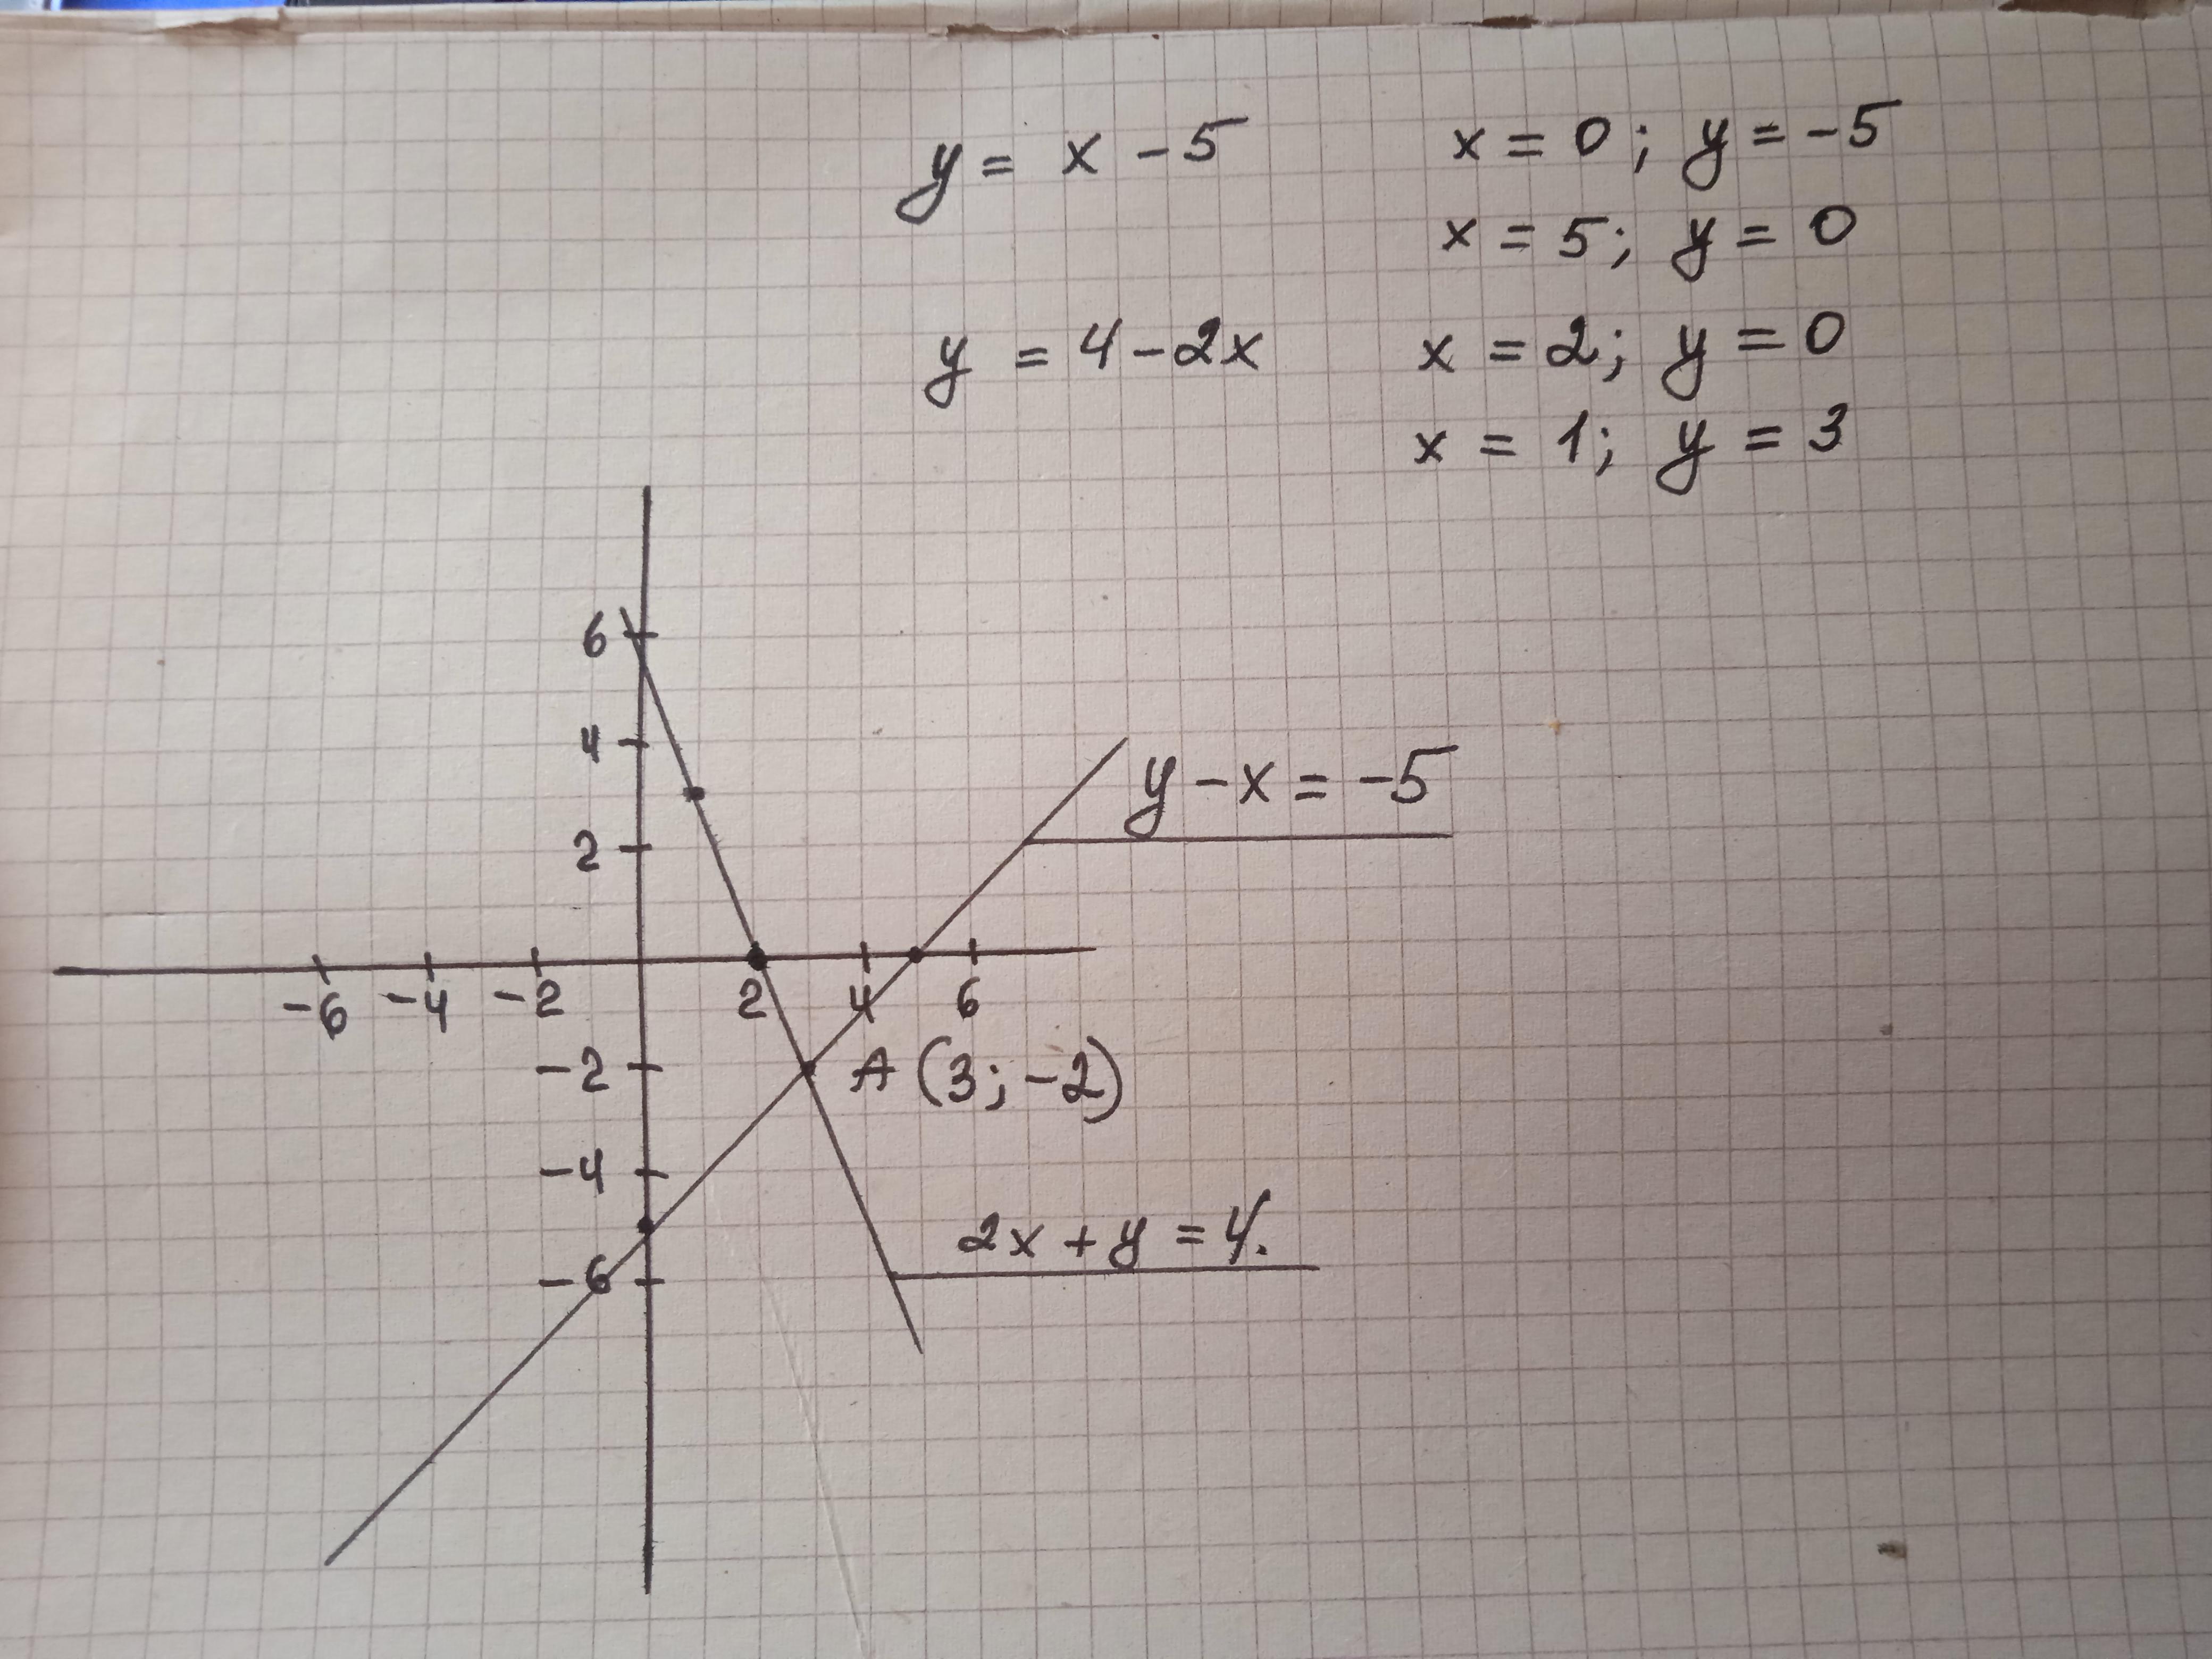 y = x - 5 x = 0; y = -5
x = 5; y = 0
y = 4 - 2x x = 2; y = 0
x = 1; y = 3
6
4
y - x = -5
2
-6 -4 -2 2 4 6
-2 A (3; -2)
-4
2x + y = 4.
-6